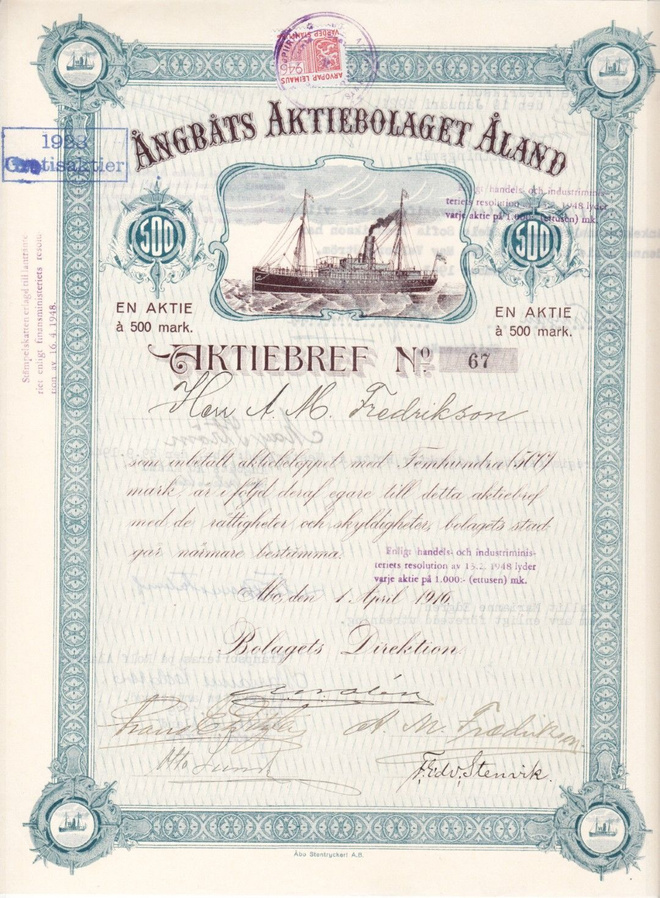 ÅNGBÅTS AKTIEBOLAGET ÅLAND
1923
Gratisaktier
ARVOPAP. LEIMAUS
946
Enligt handels- och industriminis-
teriets resolution av 13.2. 1948 lyder
varje aktie på 1.000:- (ettusen) mk.
500
500
EN AKTIE
à 500 mark.
EN AKTIE
à 500 mark.
Stämpelskatten erlagd till
riet enligt finansministeriets resolu-
tion av 16.4.1948.
AKTIEBREF No 67
Herr A. M. Fredrikson
som inbetalt aktiebeloppet med Femhundra (500)
mark, är i följd deraf egare till detta aktiebref
med de rättigheter och skyldigheter, bolagets stad-
gar närmare bestämma.
Enligt handels- och industriminis-
teriets resolution av 13.2. 1948 lyder
varje aktie på 1.000:- (ettusen) mk.
Åbo, den 1 April 1916
Bolagets Direktion
A. M. Fredrikson
Otto Lund
Fredv. Stenvik.
Åbo Stentryckeri A.B.